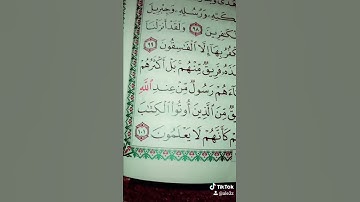 كَتِهِ وَرُسُلِهِ وَجِبْرِيلَ
لْكَٰفِرِينَ ٩٨ وَلَقَدْ أَنزَلْنَا
كْفُرُ بِهَآ إِلَّا ٱلْفَٰسِقُونَ ٩٩
ذَهُۥ فَرِيقٌ مِّنْهُم بَلْ أَكْثَرُهُمْ
آءَهُمْ رَسُولٌ مِّنْ عِندِ ٱللَّهِ
قٌ مِّنَ ٱلَّذِينَ أُوتُوا۟ ٱلْكِتَٰبَ
مْ كَأَنَّهُمْ لَا يَعْلَمُونَ ١٠١
TikTok